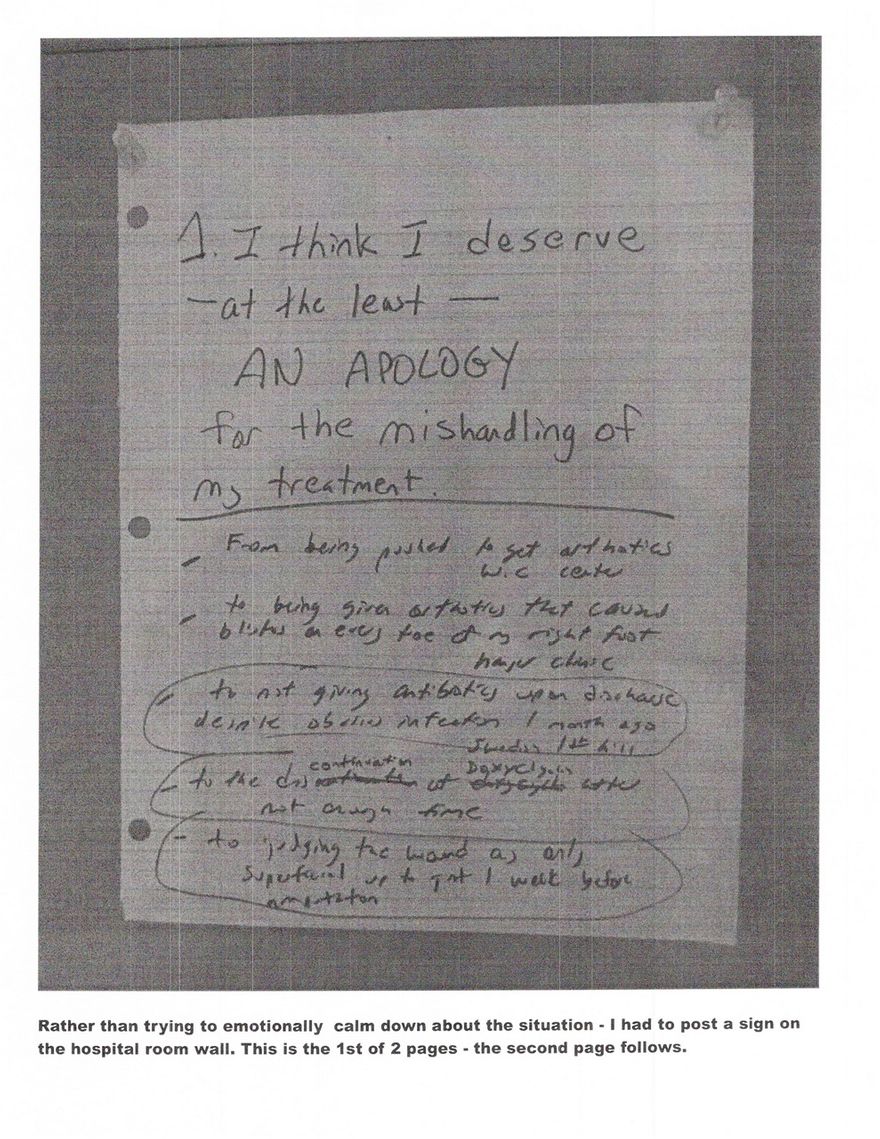 1. I think I deserve
— at the least —
AN APOLOGY
for the mishandling of
my treatment.
- From being pushed to get orthotics
W.C center
- to being given orthotics that caused
blisters on every toe of my right foot
hanger clinic
- to not giving antibiotics upon discharge
despite obvious infection 1 month ago
Swedish 1st hill
continuation Doxycyclin
- to the dis of after
not enough time
- to judging the wound as only
superficial up to just 1 week before
amputation
Rather than trying to emotionally calm down about the situation - I had to post a sign on
the hospital room wall. This is the 1st of 2 pages - the second page follows.